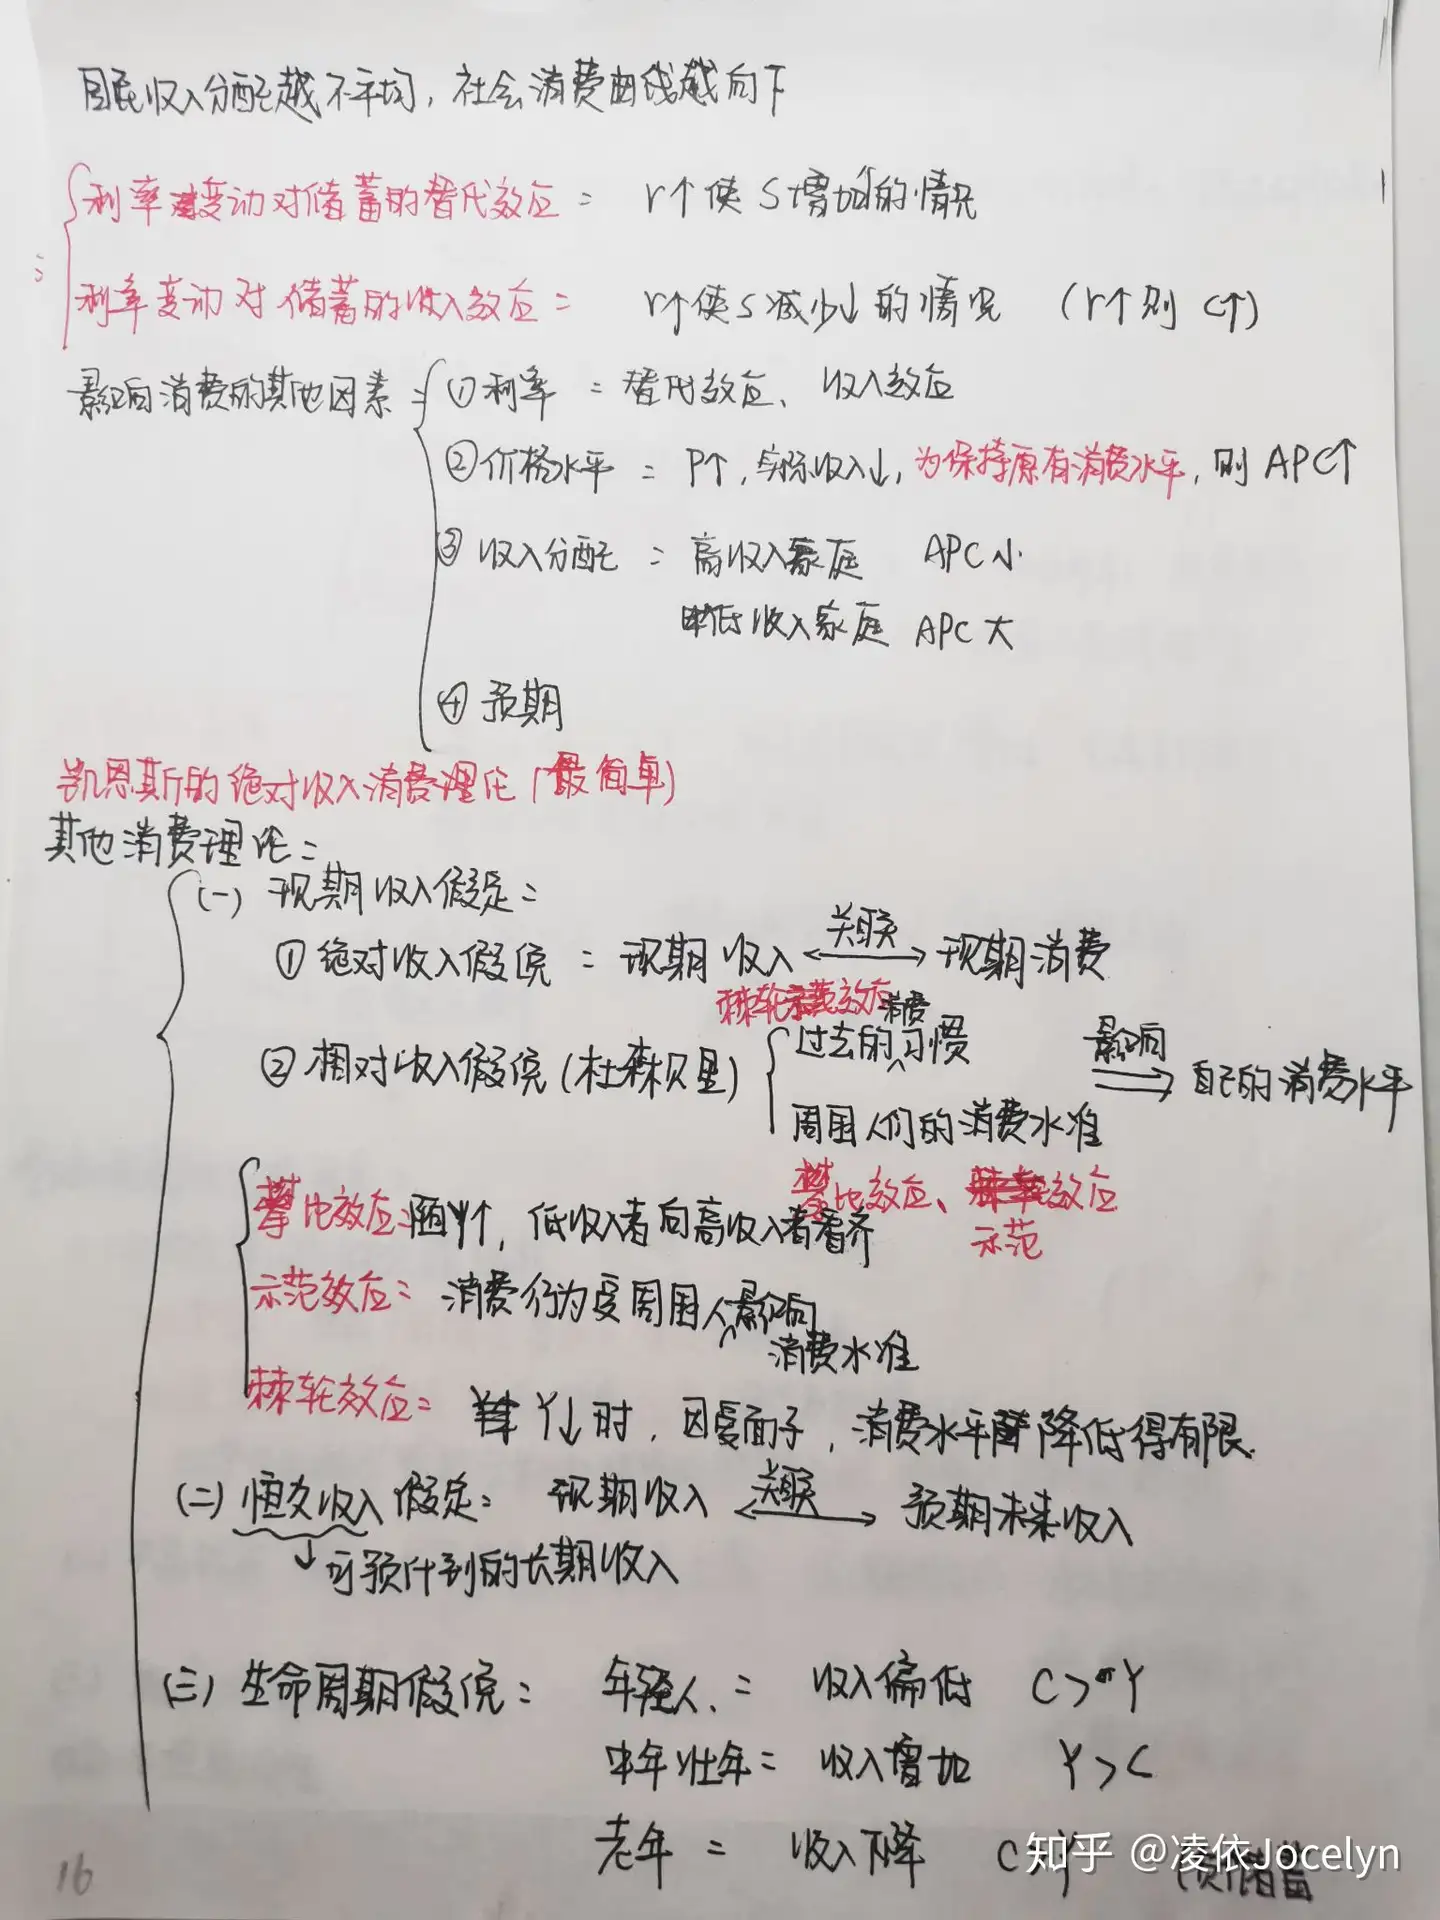 国民收入分配越不平均，社会消费曲线越向下
利率变动对储蓄的替代效应： r↑使S增加↑的情况
利率变动对储蓄的收入效应： r↑使S减少↓的情况 （r↑则C↑）
影响消费的其他因素：
①利率：替代效应、收入效应
②价格水平：P↑，实际收入↓，为保持原有消费水平，则APC↑
③收入分配：高收入家庭 APC小
低收入家庭 APC大
④预期
凯恩斯的绝对收入消费理论（最简单）
其他消费理论：
（一）现期收入假定：
①绝对收入假说：现期收入 ←关联→ 现期消费
棘轮效应
②相对收入假说（杜森贝里） 过去的消费习惯 影响⇒ 自己的消费水平
周围人们的消费水准
攀比效应、示范效应
攀比效应：随Y↑，低收入者向高收入者看齐
示范效应：消费行为受周围人消费水准影响
棘轮效应： Y↓时，因爱面子，消费水平降低得有限.
（二）恒久收入假定：现期收入 ←关联→ 预期未来收入
↓可预计到的长期收入
（三）生命周期假说：年轻人：收入偏低 C>Y
中年壮年：收入增加 Y>C
老年：收入下降 C>Y 储蓄
知乎 @凌依Jocelyn
16